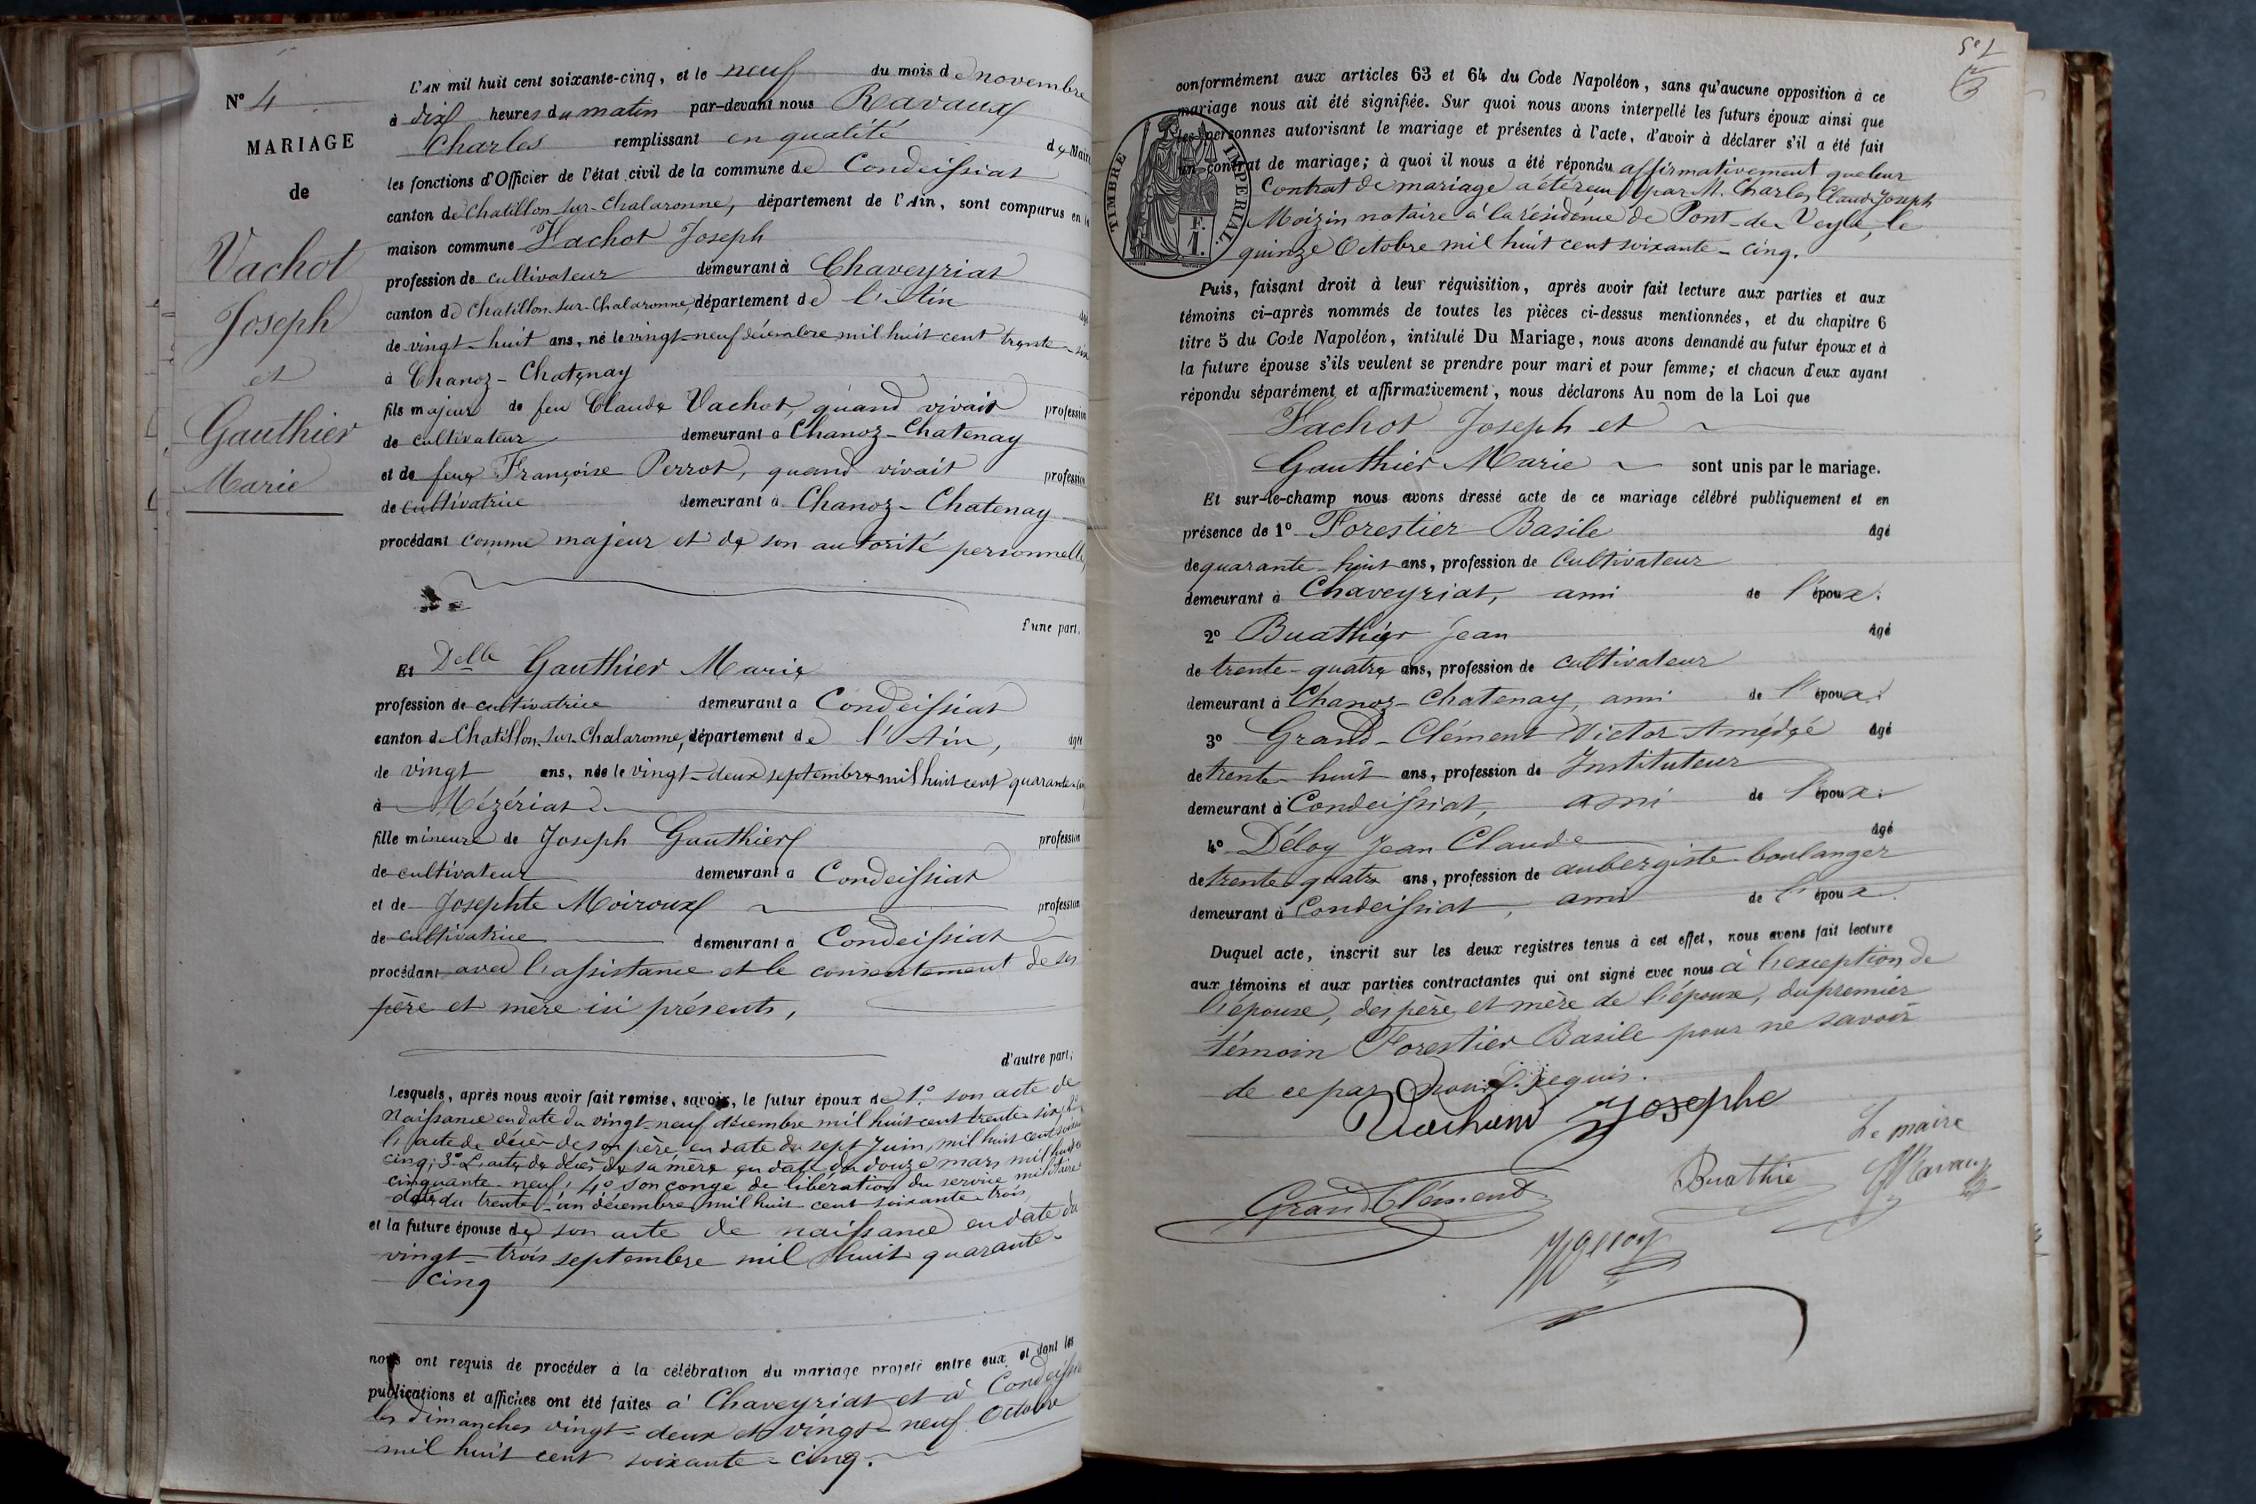 N° 4
MARIAGE
de
Vachot
Joseph
et
Gauthier
Marie
L'AN mil huit cent soixante-cinq, et le neuf du mois de novembre
à dix heures du matin par-devant nous Ravaux
Charles remplissant en qualité de Maire
les fonctions d'Officier de l'état civil de la commune de Condeissiat
canton de Chatillon-sur-Chalaronne, département de l'Ain, sont comparus en la
maison commune Vachot Joseph
profession de cultivateur demeurant à Chaveyriat
canton de Chatillon-sur-Chalaronne, département de l'Ain
de vingt-huit ans, né le vingt-neuf décembre mil huit cent trente-six
à Chanoz-Chatenay
fils majeur de feu Claude Vachot, quand vivait profession
de cultivateur demeurant à Chanoz-Chatenay
et de feue Françoise Perrot, quand vivait profession
de cultivatrice demeurant à Chanoz-Chatenay
procédant comme majeur et de son autorité personnelle,
d'une part,
Et Delle Gauthier Marie
profession de cultivatrice demeurant à Condeissiat
canton de Chatillon-sur-Chalaronne, département de l'Ain, âgée
de vingt ans, née le vingt-deux septembre mil huit cent quarante-cinq
à Mézériat
fille mineure de Joseph Gauthier profession
de cultivateur demeurant à Condeissiat
et de Josephte Moiroux profession
de cultivatrice demeurant à Condeissiat
procédant avec l'assistance et le consentement de ses
père et mère ici présents,
d'autre part;
Lesquels, après nous avoir fait remise, savoir, le futur époux de 1° son acte de
Naissance en date du vingt-neuf décembre mil huit cent trente-six; 2°
l'acte de décès de son père en date du sept Juin mil huit cent soixante
cinq; 3° L'acte de décès de sa mère en date du douze mars mil huit cent
cinquante-neuf; 4° son congé de libération du service militaire
daté du trente-un décembre mil huit cent soixante-trois
et la future épouse de son acte de naissance en date du
vingt-trois septembre mil huit quarante-
cinq
nous ont requis de procéder à la célébration du mariage projeté entre eux, et dont les
publications et affiches ont été faites à Chaveyriat et à Condeissiat
les dimanches vingt-deux et vingt-neuf Octobre
mil huit cent soixante-cinq.
conformément aux articles 63 et 64 du Code Napoléon, sans qu'aucune opposition à ce
mariage nous ait été signifiée. Sur quoi nous avons interpellé les futurs époux ainsi que
les personnes autorisant le mariage et présentes à l'acte, d'avoir à déclarer s'il a été fait
un contrat de mariage; à quoi il nous a été répondu affirmativement que leur
Contrat de mariage a été reçu par M. Charles Claude Joseph
Moizin notaire à la résidence de Pont-de-Veyle, le
quinze Octobre mil huit cent soixante-cinq.
TIMBRE IMPERIAL.
1 F.
Puis, faisant droit à leur réquisition, après avoir fait lecture aux parties et aux
témoins ci-après nommés de toutes les pièces ci-dessus mentionnées, et du chapitre 6
titre 5 du Code Napoléon, intitulé Du Mariage, nous avons demandé au futur époux et à
la future épouse s'ils veulent se prendre pour mari et pour femme; et chacun d'eux ayant
répondu séparément et affirmativement, nous déclarons Au nom de la Loi que
Vachot Joseph et
Gauthier Marie sont unis par le mariage.
Et sur-le-champ nous avons dressé acte de ce mariage célébré publiquement et en
présence de 1° Forestier Basile âgé
de quarante-huit ans, profession de Cultivateur
demeurant à Chaveyriat, ami de l'époux.
2° Buathier Jean âgé
de trente-quatre ans, profession de cultivateur
demeurant à Chanoz-Chatenay, ami de l'époux.
3° Grand-Clément Victor Amédée âgé
de trente-huit ans, profession de Instituteur
demeurant à Condeissiat, ami de l'époux.
4° Déloy Jean Claude âgé
de trente-quatre ans, profession de aubergiste-boulanger
demeurant à Condeissiat, ami de l'époux.
Duquel acte, inscrit sur les deux registres tenus à cet effet, nous avons fait lecture
aux témoins et aux parties contractantes qui ont signé avec nous à l'exception de
l'épouse, des père et mère de l'épouse, du premier
témoin Forestier Basile pour ne savoir
de ce par nous requis.
Josephe
Le maire
Buathie
Ravaux
Grand Clément